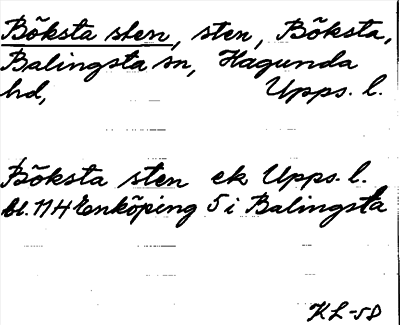 Böksta sten, sten, Böksta,
Balingsta sn, Hagunda
hd, Upps. l.
Böksta sten ek Upps. l.
bl. 11 H Enköping 5 i Balingsta
KL -58